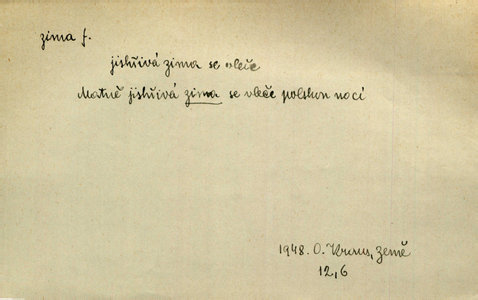 zima f.
jiskřivá zima se vleče
Matně jiskřivá zima se vleče polskou nocí
1948. O. Kraus, Země
12,6